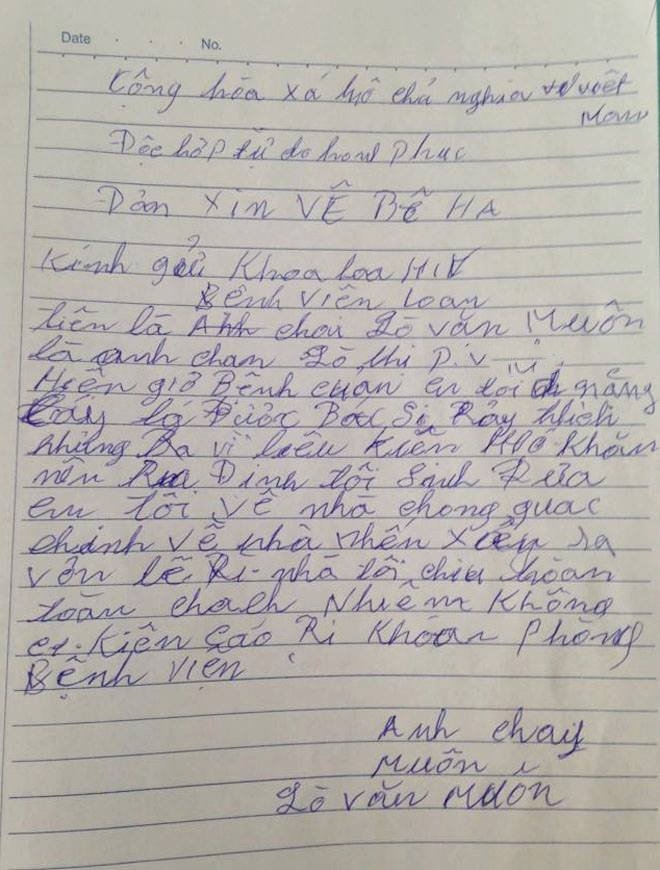 Date . . . No.
Cộng hòa xá hộ chủ nghia việt
Mam
Dộc hâp tự do hanh Phuc
Dản Xin VỄ BỄ HA
Kính gửi Khoa loa HIV
Bệnh Viên Loan
tiên là Anh chai Lò văn Muôn
là anh chan Lò thi P. V
Hiên giở Bênh cuan em tôi nặng
lá Được Bac Si Rảy thich
nhưng Ba vì liều Kiên Hoc Khăn
nên Rua Đinh tôi Sinh Rưa
em tôi Vê nhà chong quac
chinh Vễ nhà nhên Xảy ra
Vân lê Ri nhà tôi chiu hoan
toàn chach Nhiêm Không
Kiên Cáo Ri Khoan Phòng
Bệnh Viện
Anh chay
Muôn
Lò Văn Muôn